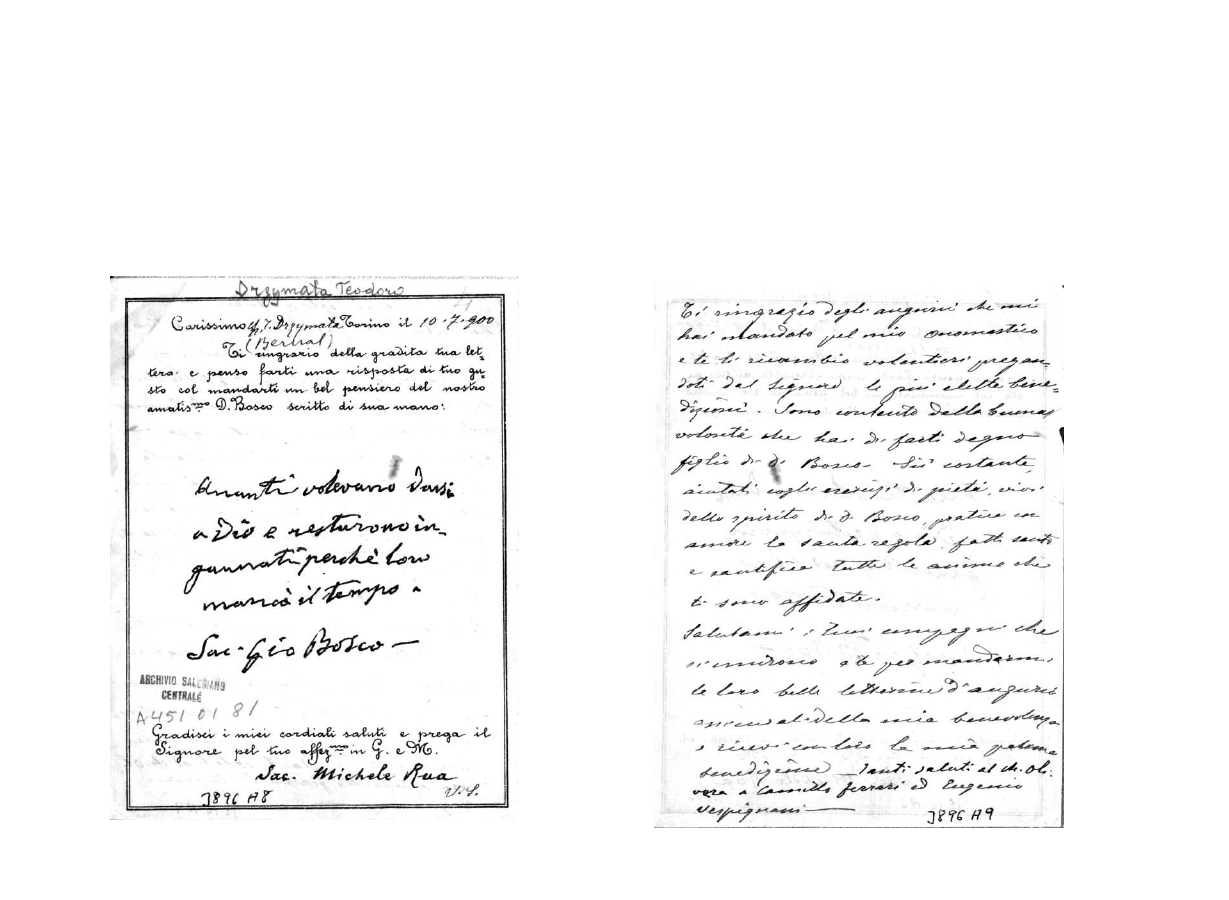 Drzymała Teodoro
Carissimo Ch. T. Drzymała Torino il 10-7-900
(Bernal)
Ti ringrazio della gradita tua let-
tera e penso farti una risposta di tuo gu-
sto col mandarti un bel pensiero del nostro
amatis.mo D. Bosco scritto di sua mano:
Quanti volevano darsi
a Dio e restarono in-
gannati perchè loro
mancò il tempo.
Sac. Gio Bosco —
ARCHIVIO SALESIANO
CENTRALE
A 451 01 81
Gradisci i miei cordiali saluti e prega il
Signore pel tuo affez.mo in G. e M.
Sac. Michele Rua
3896 A8
Ti ringrazio degli augurii che mi
hai mandato pel mio onomastico
e te li ricambio volontieri pregan-
doti dal Signore le più elette bene-
dizioni. Sono contento della buona
volontà che hai di farti degno
figlio di D. Bosco. Sii costante,
aiutati cogli esercizi di pietà, vivi
dello spirito di D. Bosco, pratica con
amore la santa regola, fatti santo
e santifica tutte le anime che
ti sono affidate.
Salutami i tuoi compagni che
si unirono a te per mandarmi
le loro belle letterine d'augurio
assicurali della mia benevolenza
e ricevi con loro la mia paterna
benedizione. Tanti saluti al ch. Oli-
vera a Camillo Ferrari ed Eugenio
Vespignani —
3896 A9